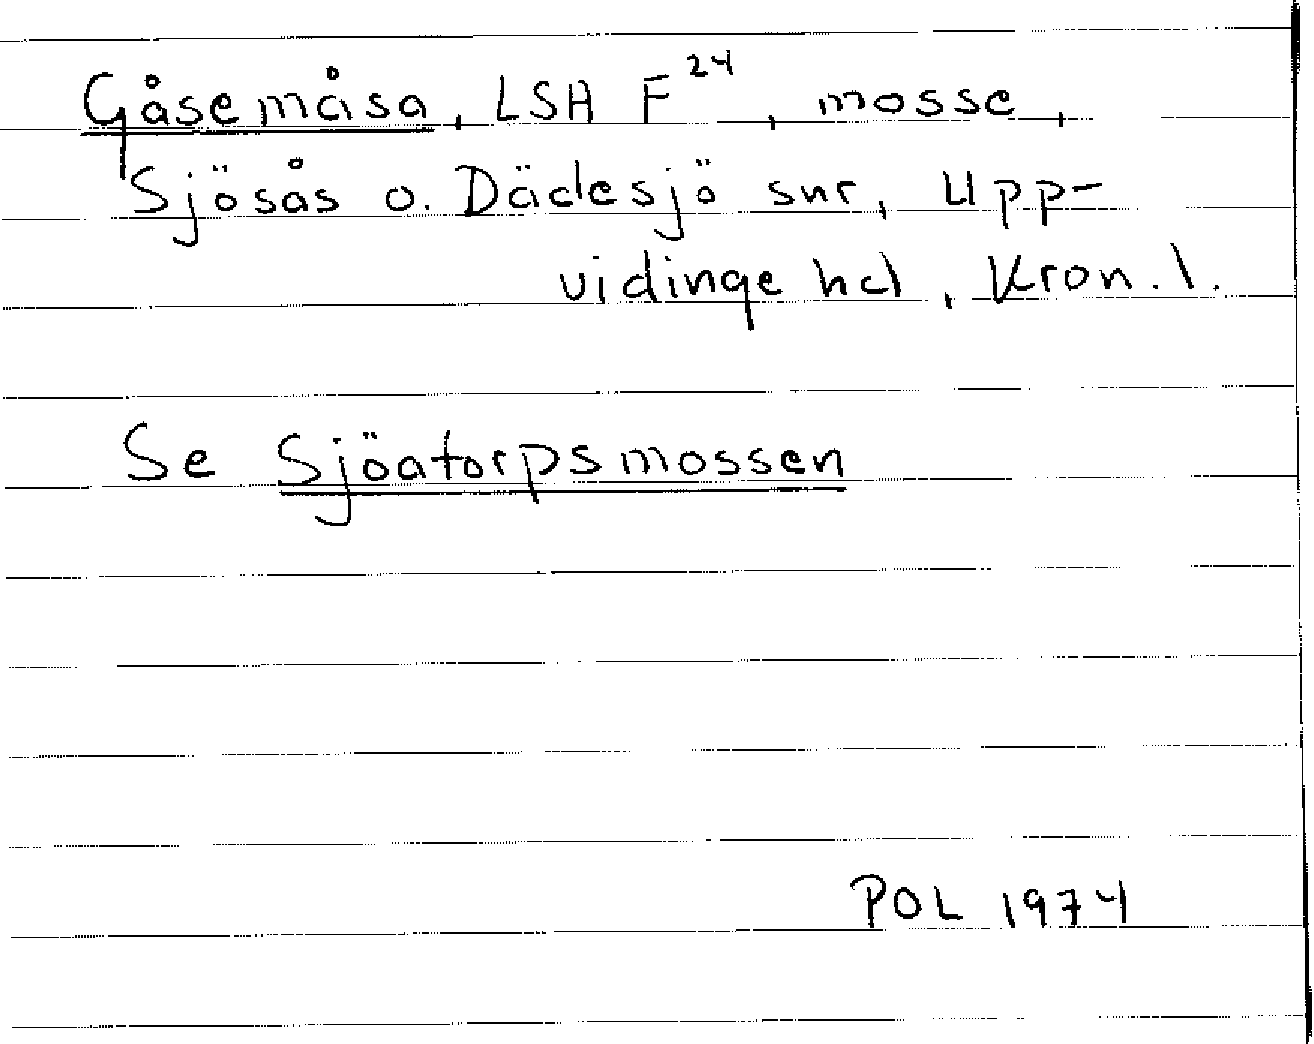 Gåsemåsa, LSA F²⁴, mosse,
Sjösås o. Dädesjö snr, Upp-
vidinge hd, Kron. l.
Se Sjöatorpsmossen
POL 1974